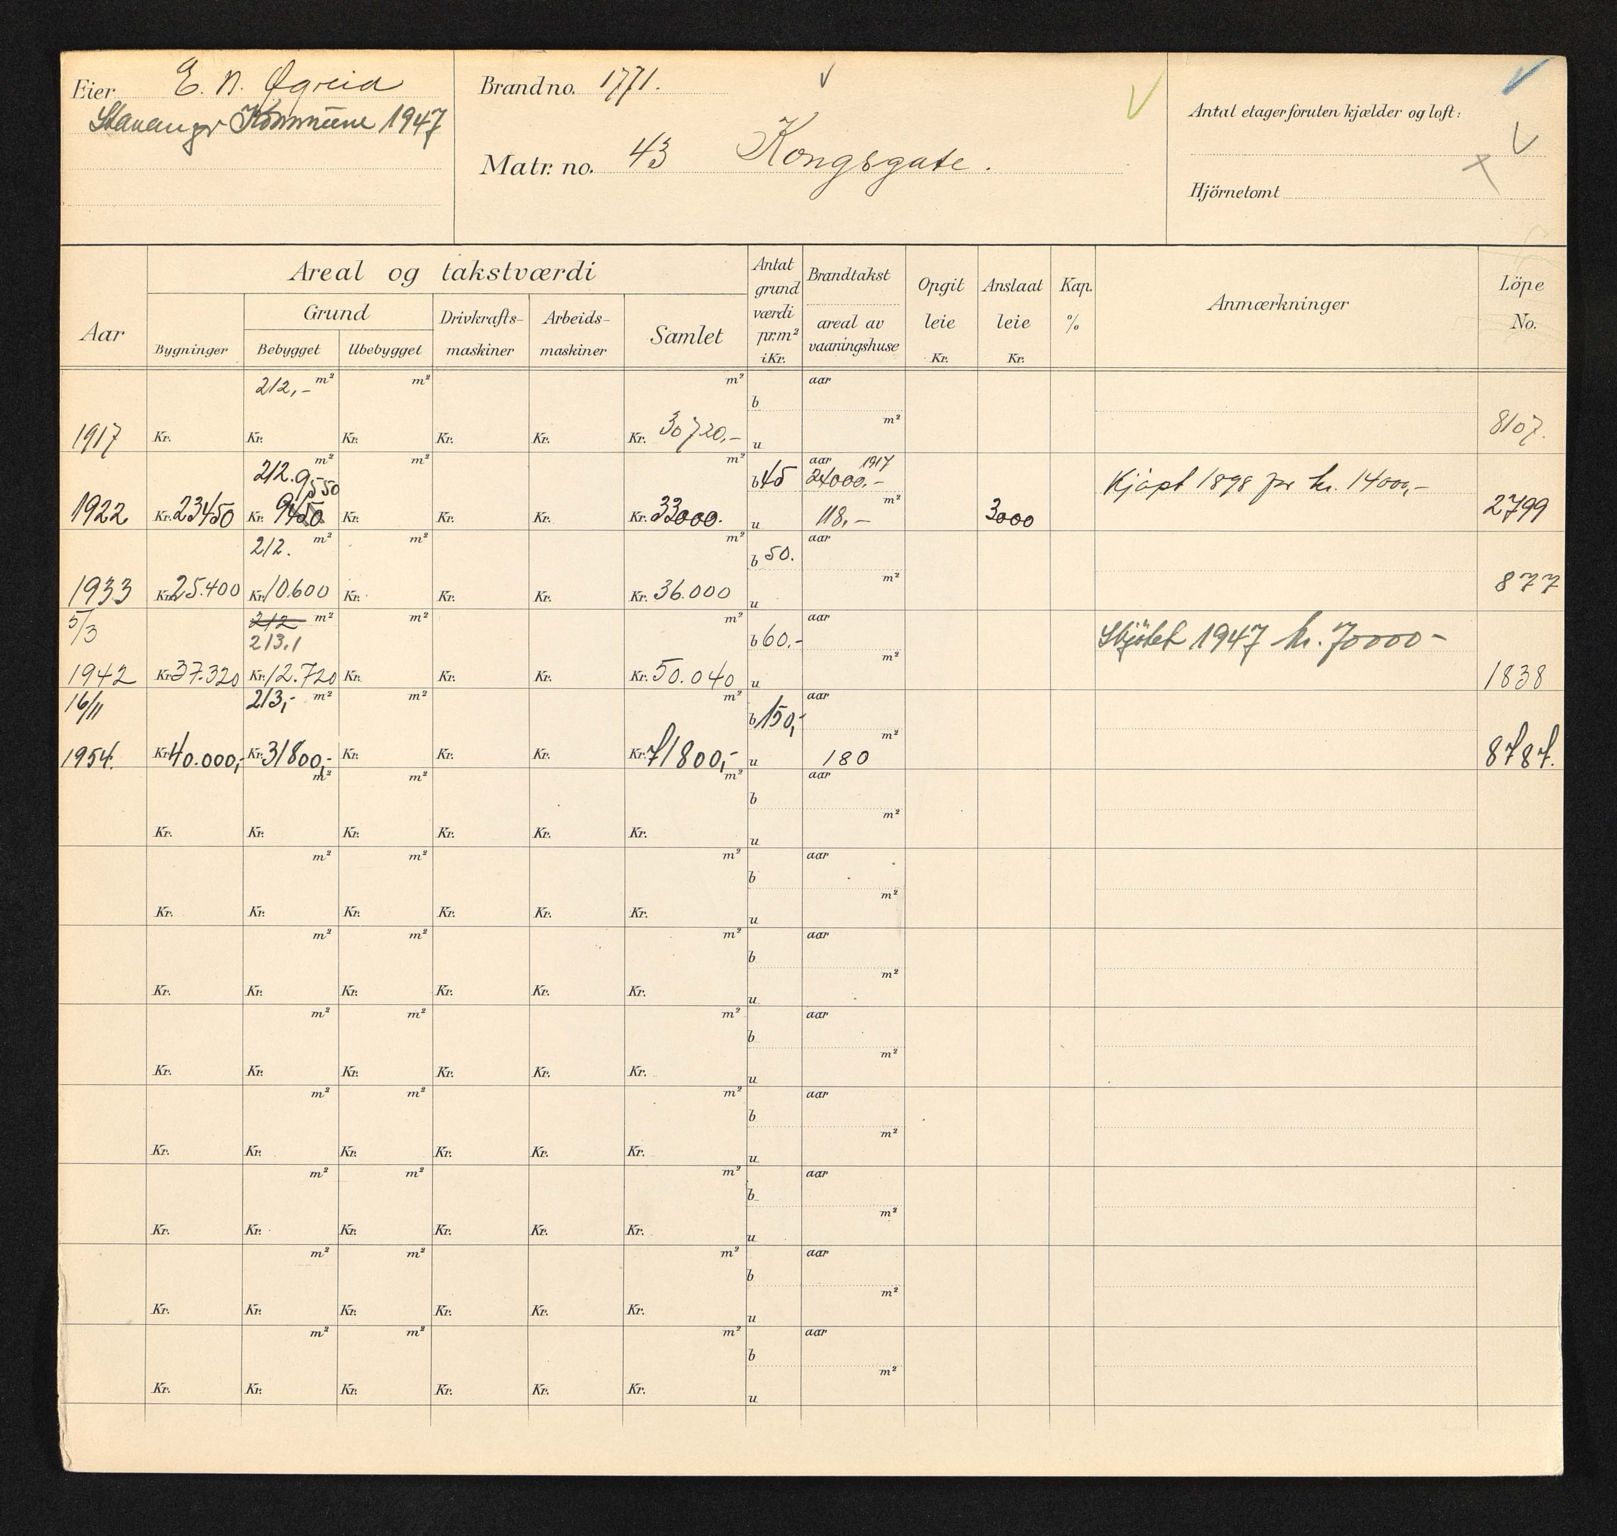 Eier E. N. Øgreid
Stavanger Kommune 1947
Brand no. 1771.
Matr. no. 43 Kongsgate.
Antal etager foruten kjælder og loft:
Hjörnetomt
Aar
Areal og takstværdi
Grund
Bygninger
Bebygget
Ubebygget
Drivkrafts-
maskiner
Arbeids-
maskiner
Samlet
Antat
grund
værdi
pr.m²
i Kr.
Brandtakst
areal av
vaaningshuse
Opgit
leie
Kr.
Anslaat
leie
Kr.
Kap.
%
Anmærkninger
Löpe
No.
212,- m² m² m² b aar
m²
1917 Kr. Kr. Kr. Kr. Kr. Kr. 30720,- u 8107.
212. m² m² m² b 45 aar 1917
9550 24000,- Kjöpt 1898 for kr. 14000,-
m²
1922 Kr. 23450 Kr. 9450 Kr. Kr. Kr. Kr. 33000. u 118,- 3000 2799
212. m² m² m² b 50. aar
m²
1933 Kr. 25.400 Kr. 10.600 Kr. Kr. Kr. Kr. 36.000 u 877
5/3 212 m² m² m² aar
213.1 b 60.- Skjötet 1947 kr. 70000-
m²
1942 Kr. 37.320 Kr. 12.720 Kr. Kr. Kr. Kr. 50.040 u 1838
16/11 213,- m² m² m² b 150,- aar
m²
1954. Kr. 40.000,- Kr. 31800,- Kr. Kr. Kr. Kr. 71800,- u 180 8787.
m² m² m² aar
b
m²
Kr. Kr. Kr. Kr. Kr. Kr. u
m² m² m² aar
b
m²
Kr. Kr. Kr. Kr. Kr. Kr. u
m² m² m² aar
b
m²
Kr. Kr. Kr. Kr. Kr. Kr. u
m² m² m² aar
b
m²
Kr. Kr. Kr. Kr. Kr. Kr. u
m² m² m² aar
b
m²
Kr. Kr. Kr. Kr. Kr. Kr. u
m² m² m² aar
b
m²
Kr. Kr. Kr. Kr. Kr. Kr. u
m² m² m² aar
b
m²
Kr. Kr. Kr. Kr. Kr. Kr. u
m² m² m² aar
b
m²
Kr. Kr. Kr. Kr. Kr. Kr. u